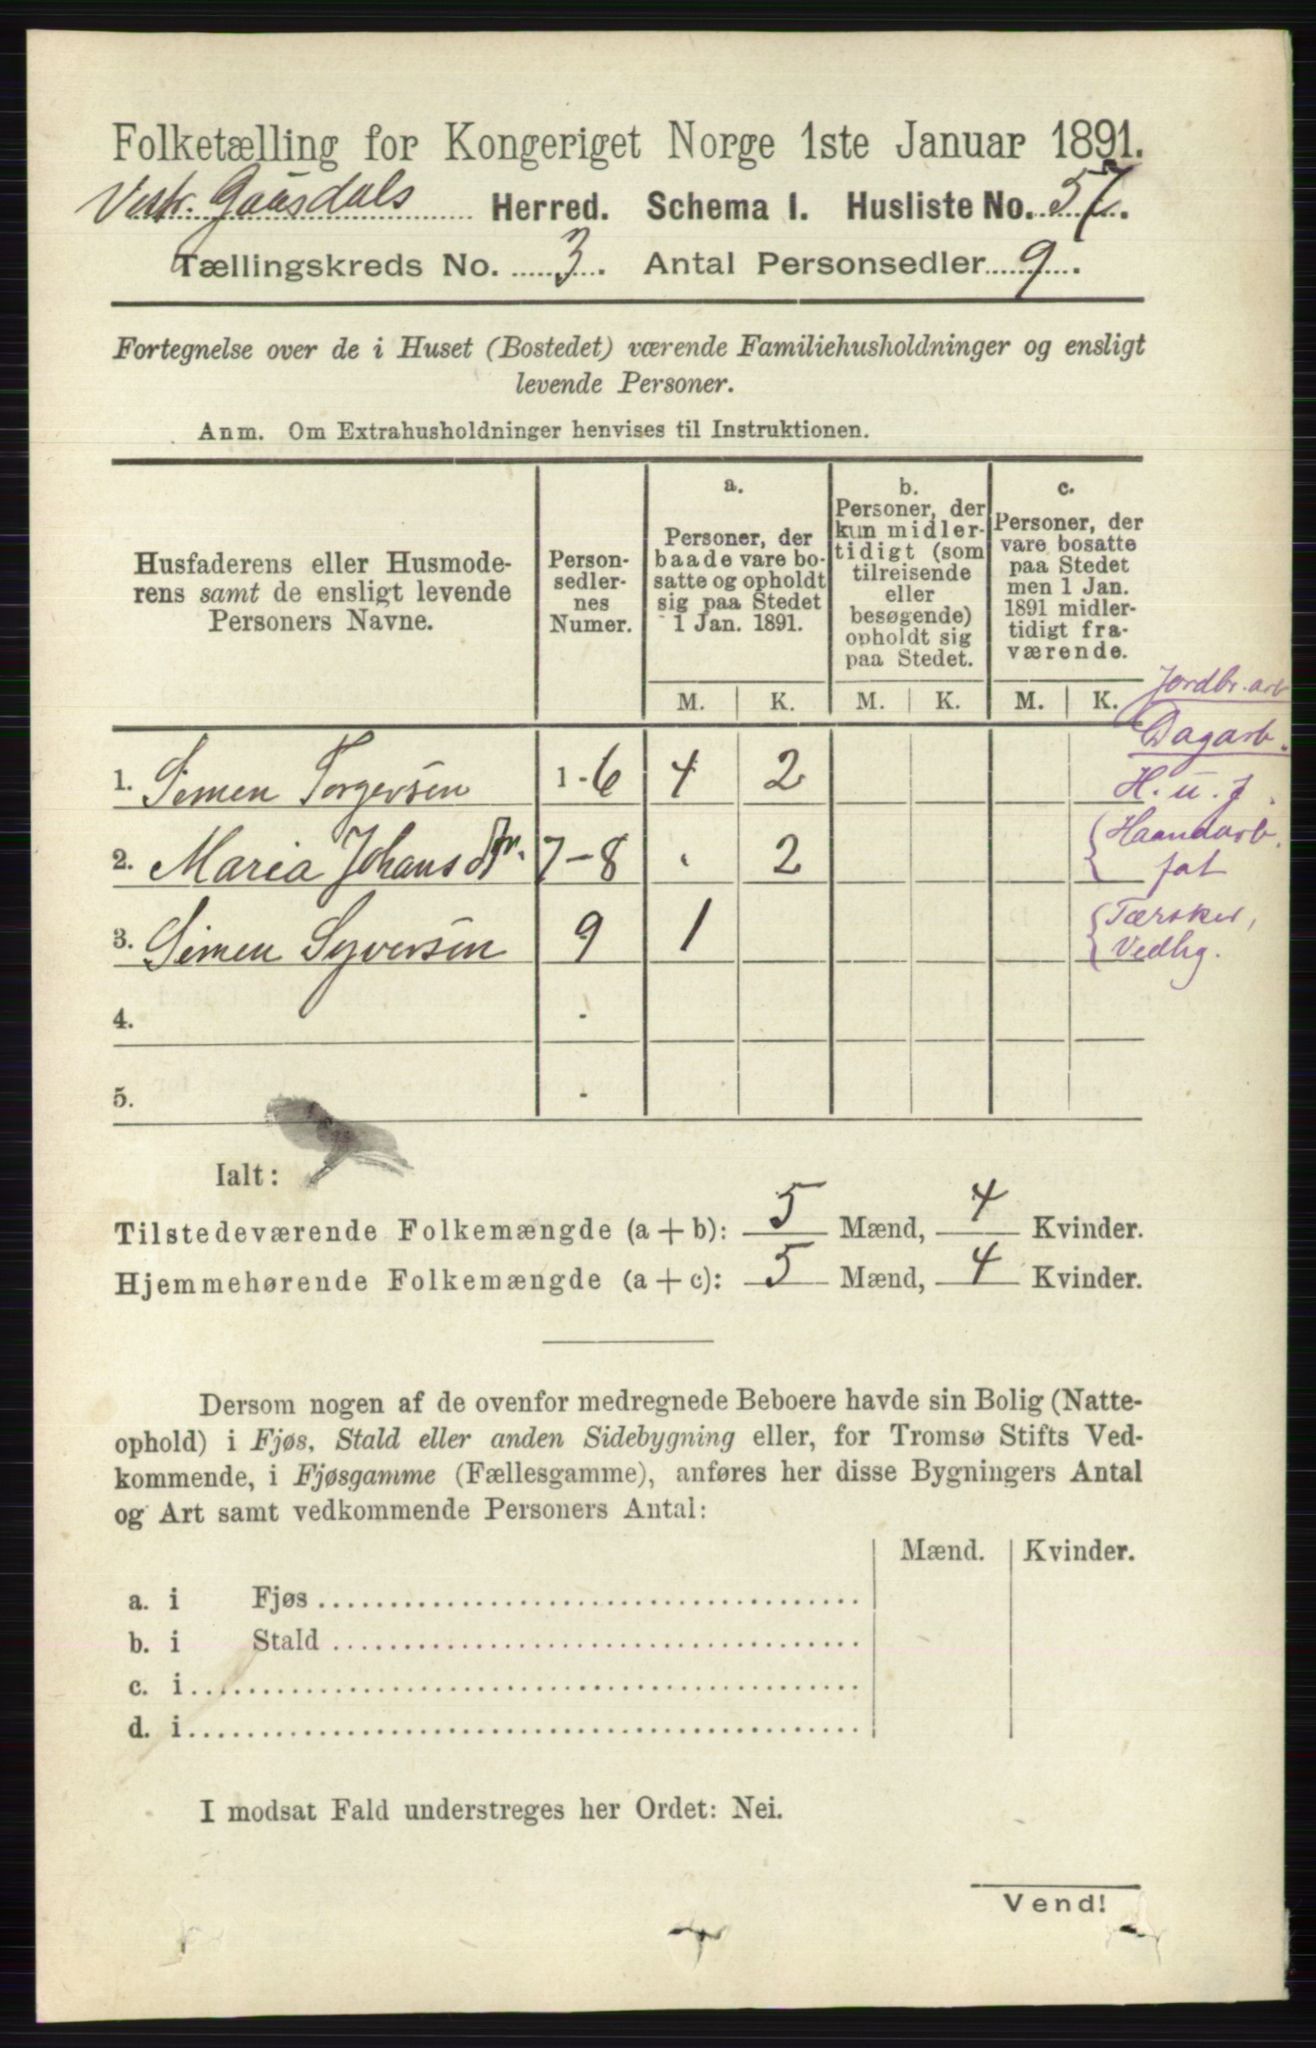 Folketælling for Kongeriget Norge 1ste Januar 1891.
Vestr. Gausdals Herred. Schema I. Husliste No. 57.
Tællingskreds No. 3. Antal Personsedler 9.
Fortegnelse over de i Huset (Bostedet) værende Familiehusholdninger og ensligt
levende Personer.
Anm. Om Extrahusholdninger henvises til Instruktionen.
Husfaderens eller Husmode-
rens samt de ensligt levende
Personers Navne.
Person-
sedler-
nes
Numer.
a.
Personer, der
baade vare bo-
satte og opholdt
sig paa Stedet
1 Jan. 1891.
b.
Personer, der
kun midler-
tidigt (som
tilreisende
eller
besøgende)
opholdt sig
paa Stedet.
c.
Personer, der
vare bosatte
paa Stedet
men 1 Jan.
1891 midler-
tidigt fra-
værende.
M. K. M. K. M. K.
Jordbr. arb
Dagarb.
1. Simen Torgersen 1-6 4 2 H. u. j.
2. Maria Johansdtr. 7-8 . 2 Haandarb.
fat
3. Simen Syversen 9 1 Tærsker,
Vedhg.
4. -
5. -
Ialt:
Tilstedeværende Folkemængde (a + b): 5 Mænd, 4 Kvinder.
Hjemmehørende Folkemængde (a + c): 5 Mænd, 4 Kvinder.
Dersom nogen af de ovenfor medregnede Beboere havde sin Bolig (Natte-
ophold) i Fjøs, Stald eller anden Sidebygning eller, for Tromsø Stifts Ved-
kommende, i Fjøsgamme (Fællesgamme), anføres her disse Bygningers Antal
og Art samt vedkommende Personers Antal:
Mænd. Kvinder.
a. i Fjøs
b. i Stald
c. i
d. i
I modsat Fald understreges her Ordet: Nei.
Vend!